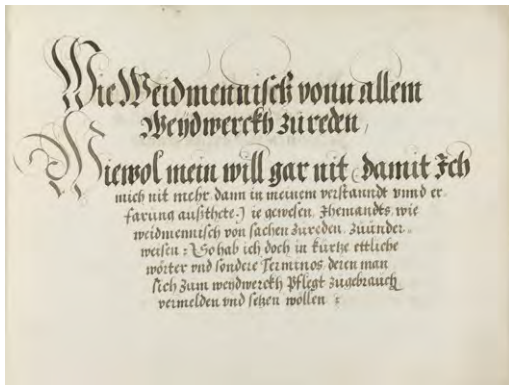 Wie Weidmennisch vonn allem
Weydwerckh zúreden,
Wiewol mein will gar nit, damit Ich
mich nit mehr dann in meinem verstanndt vnnd er„
farung aufthete, ie gewesen, Jhemandts, wie
weidmennisch von sachen zúreden, zúúnder„
weisen: So hab ich doch in kürtze ettliche
wörter vnd sondere Terminos, deren man
sich zum weydwerckh Pflegt zúgebrauch
vermelden vnd setzen wöllen :